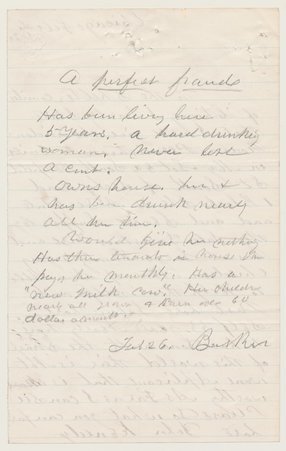 A perfect fraud
Has been living here
5 years, a hard drinking
woman, never lost
a cent.
owns house, her &
has been drunk nearly
all her time,
Would give her nothing
Has three tenants in house who
pays her monthly. Has a
"new milk cow". Her children
nearly all grown & earn over 60
dollars a month
Feb 26.